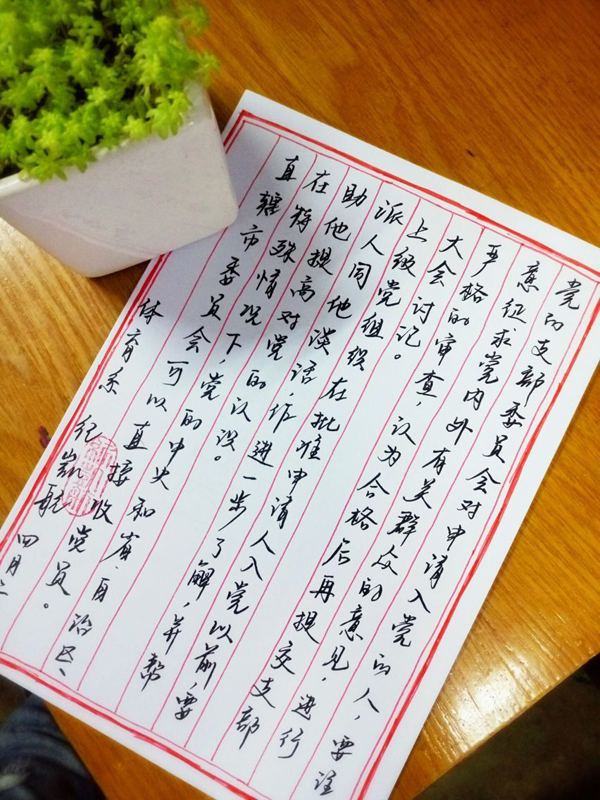 党的支部委员会对申请入党的人，要注
意征求党内外有关群众的意见，进行
严格的审查，认为合格后再提交支部
大会讨论。
上级党组织在批准申请人入党以前，要
派人同他谈话，作进一步了解，并帮
助他提高对党的认识。
在特殊情况下，党的中央和省、自治区、
直辖市委员会可以直接收党员。
体育系 纪凯航 四月二